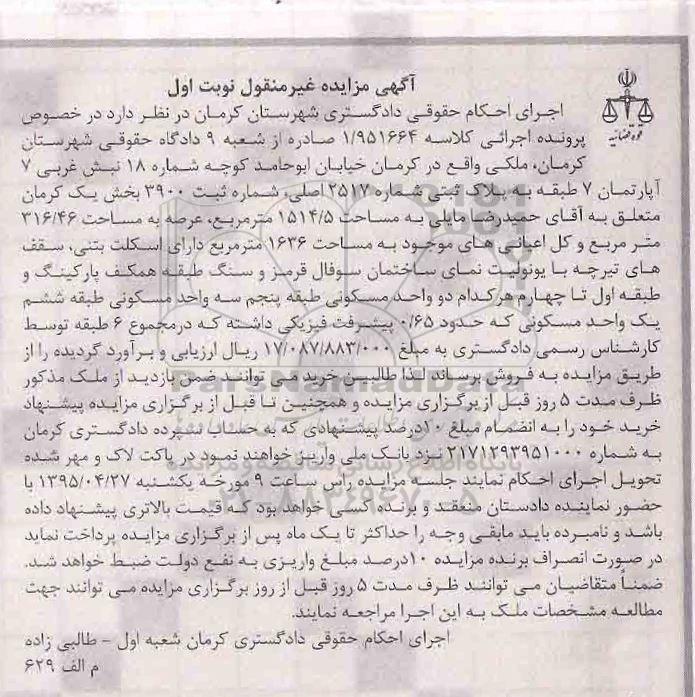 آگهی مزایده غیرمنقول نوبت اول
قوه قضائیه
اجرای احکام حقوقی دادگستری شهرستان کرمان در نظر دارد در خصوص
پرونده اجرائی کلاسه ۱/۹۵۱۶۶۴ صادره از شعبه ۹ دادگاه حقوقی شهرستان
کرمان، ملکی واقع در کرمان خیابان ابوحامد کوچه شماره ۱۸ نبش غربی ۷
آپارتمان ۷ طبقه به پلاک ثبتی شماره ۲۵۱۷ اصلی، شماره ثبت ۳۹۰۰ بخش یک کرمان
متعلق به آقای حمیدرضا مایلی به مساحت ۱۵۱۴/۵ مترمربع، عرصه به مساحت ۳۱۶/۴۶
متر مربع و کل اعیانی های موجود به مساحت ۱۶۳۶ مترمربع دارای اسکلت بتنی، سقف
های تیرچه با یونولیت نمای ساختمان سوفال قرمز و سنگ طبقه همکف پارکینگ و
طبقه اول تا چهارم هرکدام دو واحد مسکونی طبقه پنجم سه واحد مسکونی طبقه ششم
یک واحد مسکونی که حدود ۰/۶۵ پیشرفت فیزیکی داشته که درمجموع ۶ طبقه توسط
کارشناس رسمی دادگستری به مبلغ ۱۷/۰۸۷/۸۸۳/۰۰۰ ریال ارزیابی و برآورد گردیده را از
طریق مزایده به فروش برساند لذا طالبین خرید می توانند ضمن بازدید از ملک مذکور
ظرف مدت ۵ روز قبل از برگزاری مزایده و همچنین تا قبل از برگزاری مزایده پیشنهاد
خرید خود را به انضمام مبلغ ۱۰درصد پیشنهادی که به حساب سپرده دادگستری کرمان
به شماره ۲۱۷۱۲۹۳۹۵۱۰۰۰ نزد بانک ملی واریز خواهند نمود در پاکت لاک و مهر شده
تحویل اجرای احکام نمایند جلسه مزایده راس ساعت ۹ مورخه یکشنبه ۱۳۹۵/۰۴/۲۷ با
حضور نماینده دادستان منعقد و برنده کسی خواهد بود که قیمت بالاتری پیشنهاد داده
باشد و نامبرده باید مابقی وجه را حداکثر تا یک ماه پس از برگزاری مزایده پرداخت نماید
در صورت انصراف برنده مزایده ۱۰درصد مبلغ واریزی به نفع دولت ضبط خواهد شد.
ضمناً متقاضیان می توانند ظرف مدت ۵ روز قبل از روز برگزاری مزایده می توانند جهت
مطالعه مشخصات ملک به این اجرا مراجعه نمایند.
اجرای احکام حقوقی دادگستری کرمان شعبه اول - طالبی زاده
م الف ۶۲۹